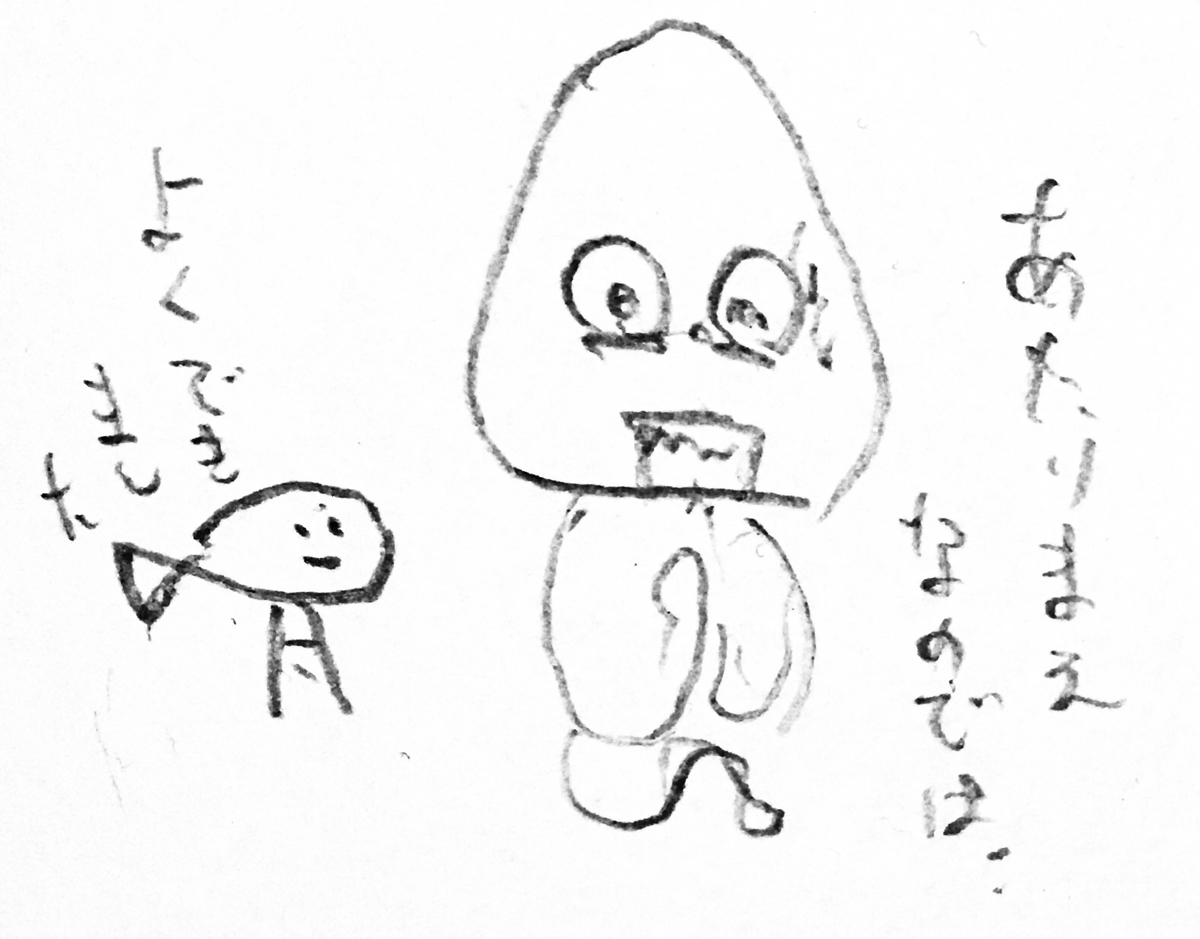 あたりまえ
なのでは‥
よくでき
まし
た